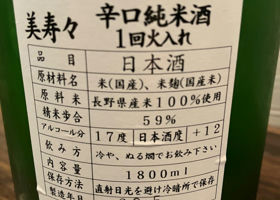 美寿々
辛口純米酒
1回火入れ
品目 日本酒
原材料名 米(国産)、米麹(国産米)
原料米 長野県産米100%使用
精米歩合 59%
アルコール分 17度 日本酒度 +12
飲み方 冷や、ぬる燗でお飲み下さい
内容量 1800ml
保存方法 直射日光を避け冷暗所で保存
製造年月